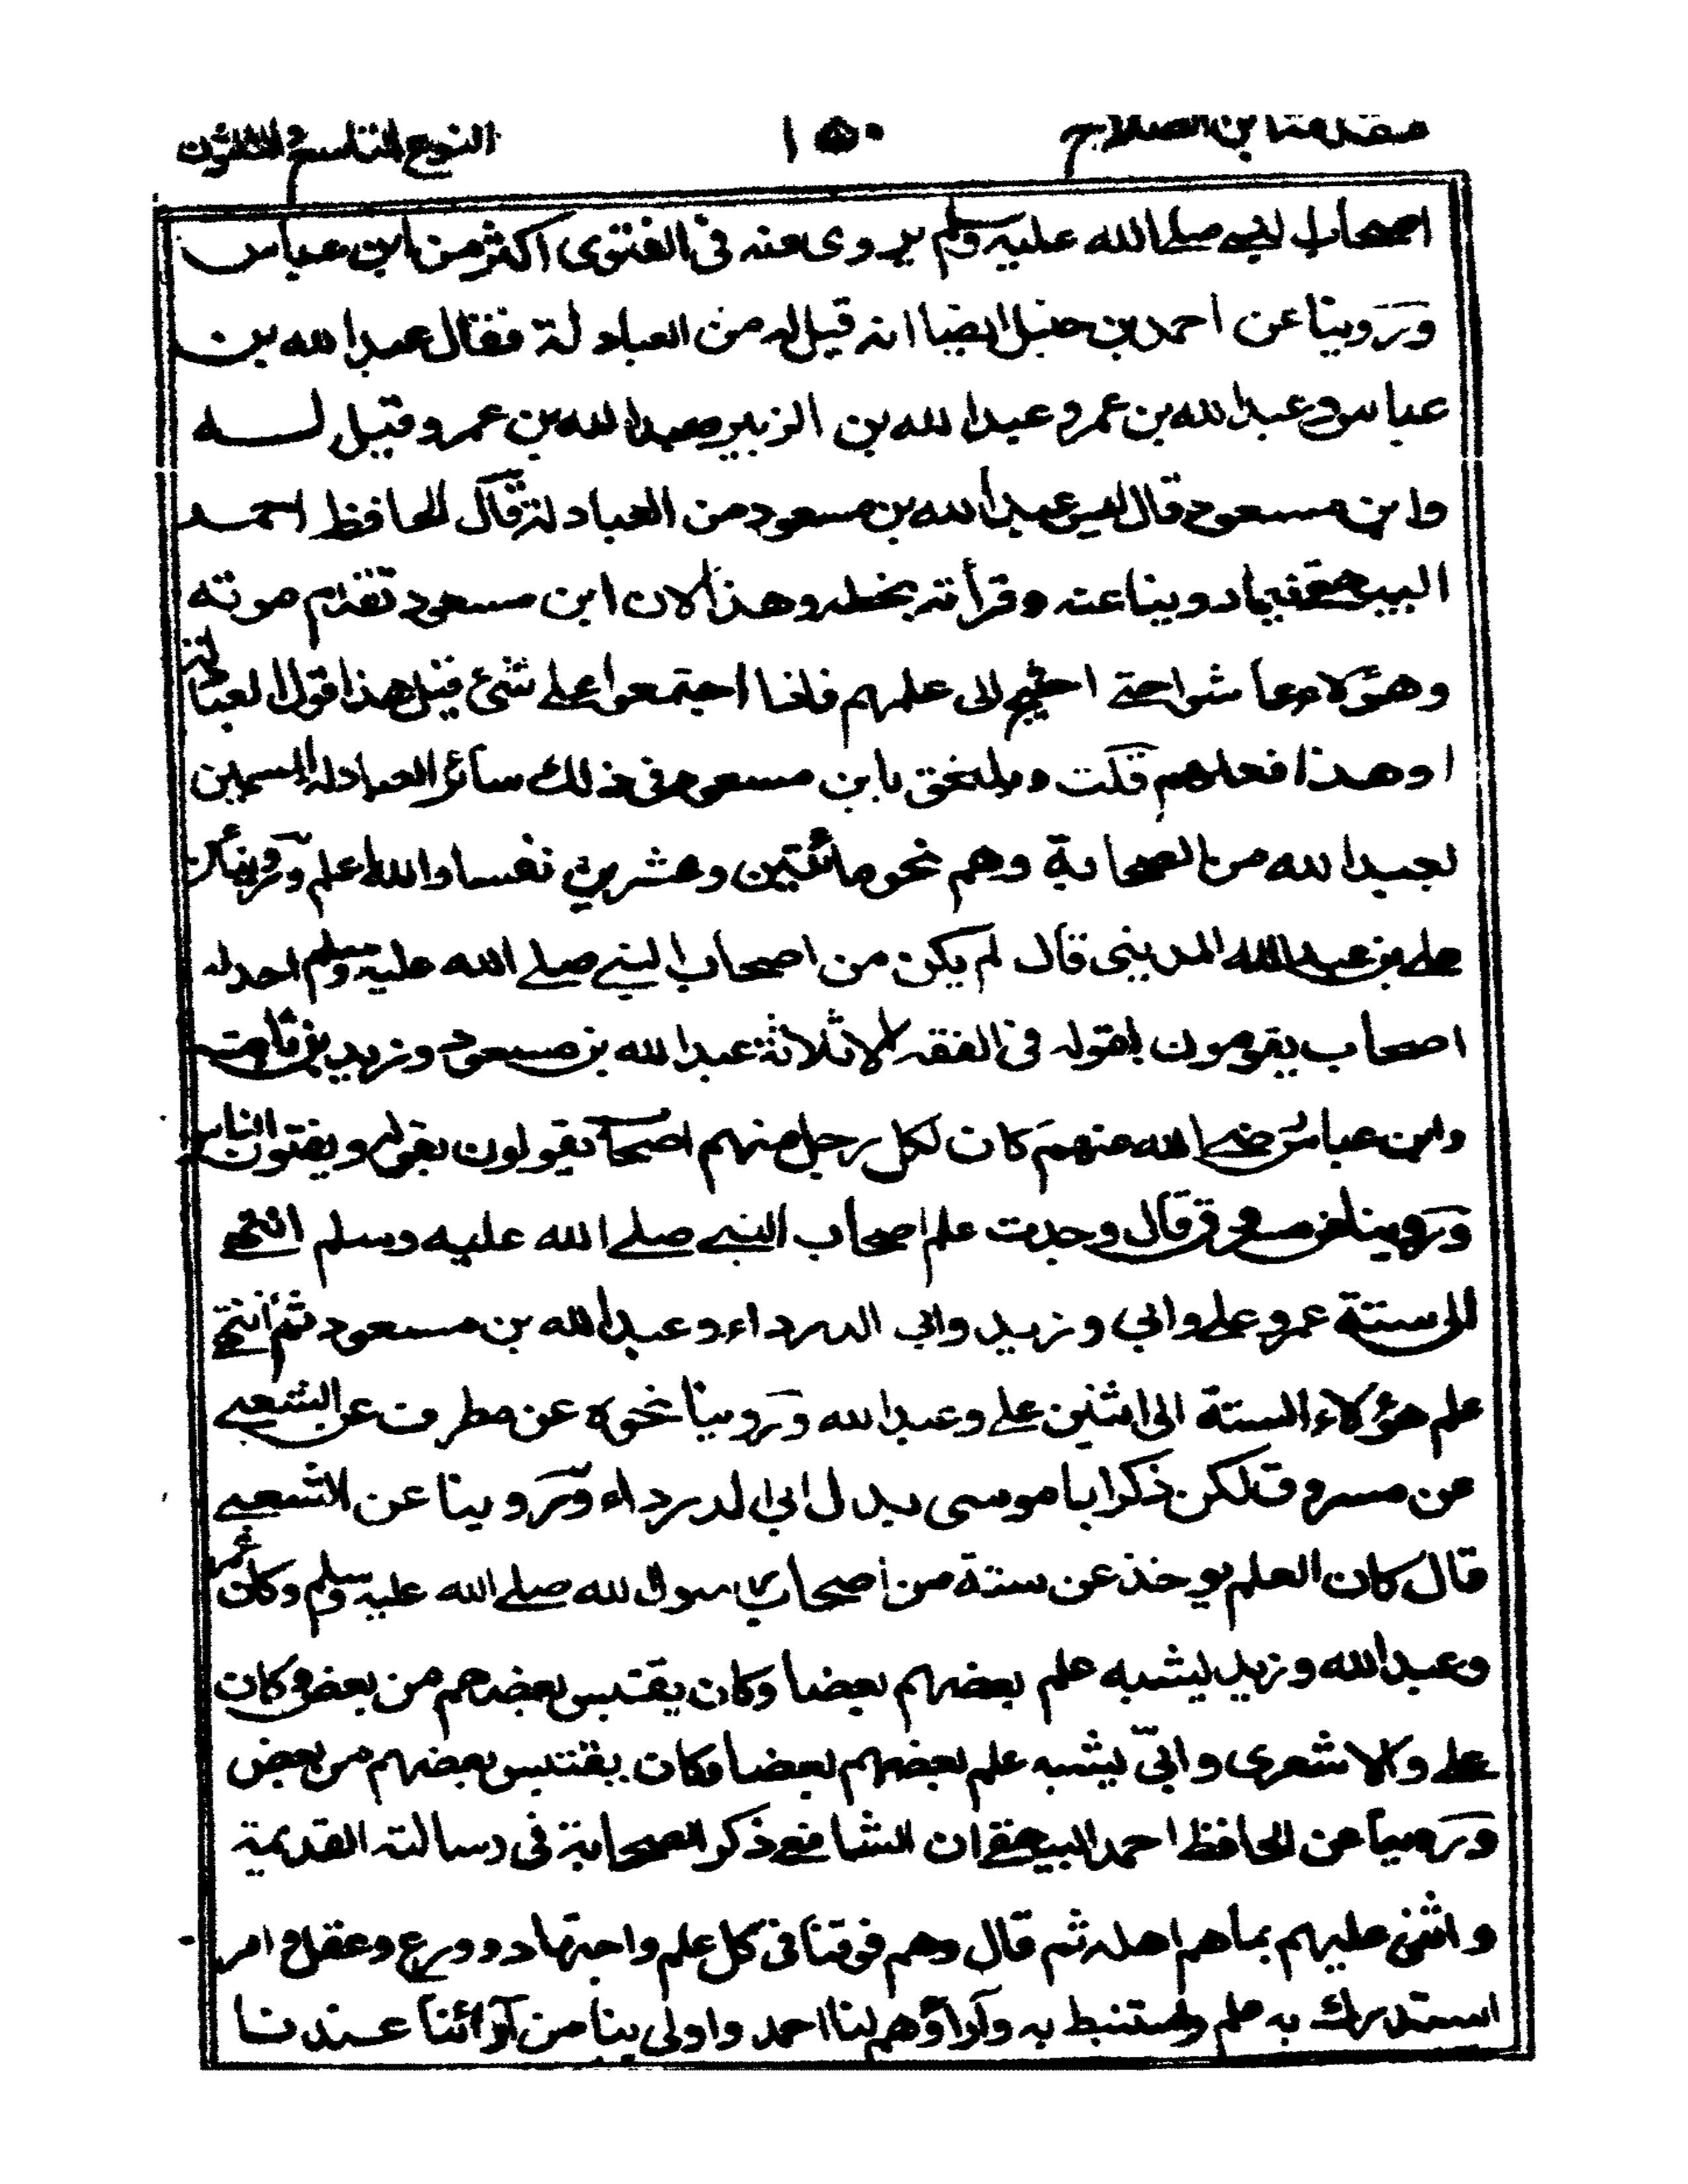 مقدمة ابن الصلاح ١٥٠ النوع التاسع والثلثون
اصحاب النبي صلے الله عليه وسلم يروى عنه فى الفتوى اكثر من ابن عباس
وروينا عن احمد بن حنبل ايضا انه قيل له من العبادلة فقال عبد الله بن
عباس وعبد الله بن عمر وعبد الله بن الزبير وعبد الله بن عمرو قيل له
وابن مسعود قال ليس عبد الله بن مسعود من العبادلة قال الحافظ احمد
البيهقے فيما روينا عنه وقرأته بخطه وهذا لان ابن مسعود تقدم موته
وهؤلاء عاشوا حتے احتيج الى علمهم فاذا اجتمعوا علے شئ قيل هذا قول العبادلة
او هذا فعلهم قلت ويلتحق بابن مسعود فى ذلك سائر العبادلة المسمين
بعبد الله من الصحابة وهم نحو مائتين وعشرين نفسا والله اعلم وروينا عن
علے بن عبد الله المدينى قال لم يكن من اصحاب النبي صلے الله عليه وسلم احد له
اصحاب يقومون بقوله فى الفقه الا ثلاثة عبد الله بن مسعود وزيد بن ثابت
وابن عباس رضے الله عنهم كان لكل رجل منهم اصحاب يقولون بقوله ويفتون الناس
وروينا عن مسروق قال وجدت علم اصحاب النبي صلے الله عليه وسلم انتهے
الى ستة عمر وعلے وابي وزيد وابي الدرداء وعبد الله بن مسعود ثم انتهے
علم هؤلاء الستة الى اثنين علے وعبد الله وروينا نحوه عن مطرف عن الشعبے
عن مسروق لكن ذكر ابا موسى بدل ابي الدرداء وروينا عن الشعبے
قال كان العلم يوخذ عن ستة من اصحاب رسول الله صلے الله عليه وسلم وكان عمر
وعبد الله وزيد يشبه علم بعضهم بعضا وكان يقتبس بعضهم من بعض وكان
علے والاشعرى وابيّ يشبه علم بعضهم بعضا وكان يقتبس بعضهم من بعض
وروينا عن الحافظ احمد البيهقے ان الشافعے ذكر الصحابة فى رسالته القديمة
واثنى عليهم بما هم اهله ثم قال وهم فوقنا فى كل علم واجتهاد وورع وعقل وامر
استدرك به علم واستنبط به وآراؤهم لنا احمد واولى بنا من آرائنا عندنا